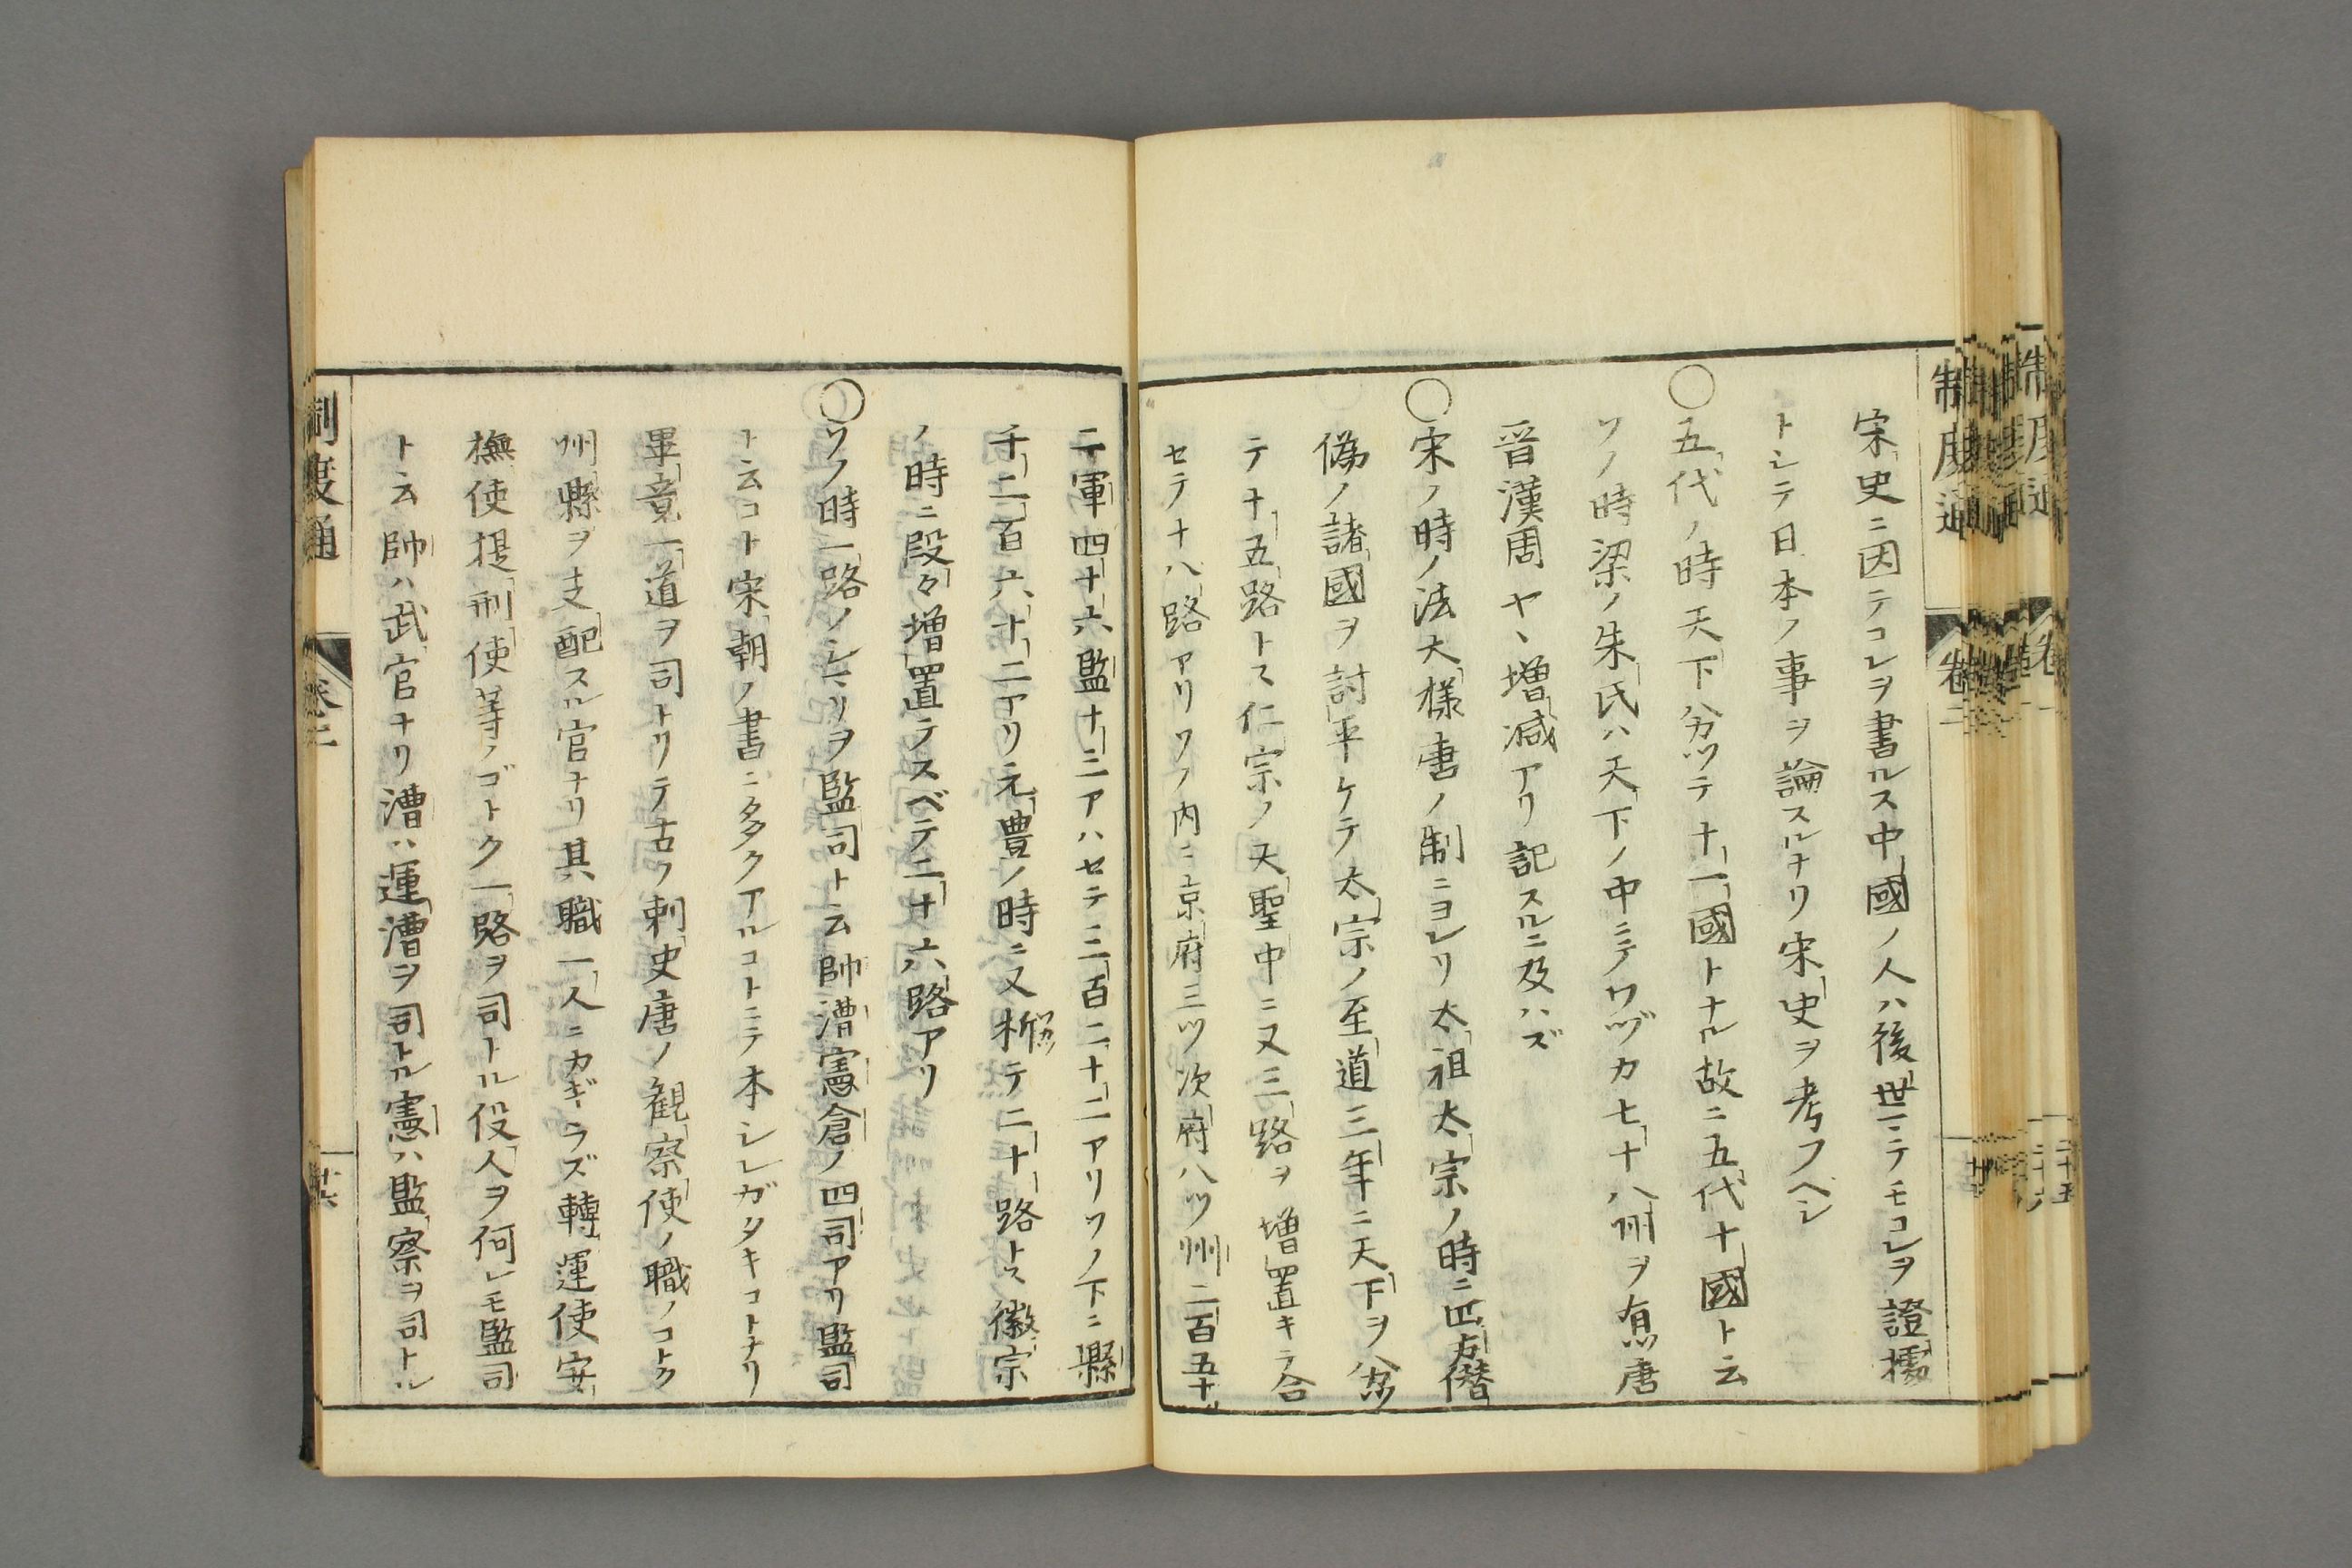 宋史ニ因テコレヲ書ルス中國ノ人ハ後世ニテモコレヲ證據
トシテ日本ノ事ヲ論スルナリ宋史ヲ考フベシ
○五代ノ時天下分ツテ十一國トナル故ニ五代十國ト云
ソノ時梁ノ朱氏ハ天下ノ中ニテワヅカ七十八州ヲ有唐
晉漢周ヤヽ増减アリ記スルニ及ハズ
○宋ノ時ノ法大様唐ノ制ニヨレリ太祖太宗ノ時ニ四方僭
偽ノ諸國ヲ討平ケテ太宗ノ至道三年ニ天下ヲ分
テ十五路トス仁宗ノ天聖中ニ又三路ヲ増置キテ合
セテ十八路アリソノ内ニ京府三ツ次府八ツ州二百五十
二軍四十六監十三アハセテ三百二十二アリソノ下ニ縣
千二百六十二アリ元豊ノ時ニ又析テ二十路トス徽宗
ノ時ニ段々増置テスベテ二十六路アリ
○ソノ時一路ノシマリヲ監司ト云帥漕憲倉ノ四司アリ監司
ト云コト宋朝ノ書ニ多クアルコトニテ本シレガタキコトナリ
畢竟一道ヲ司トリテ古ノ刺史唐ノ観察使ノ職ノコトク
州縣ヲ支配スル官ナリ其職一人ニカギラズ轉運使安
撫使提刑使等ノゴトク一路ヲ司トル役人ヲ何レモ監司
ト云帥ハ武官ナリ漕ハ運漕ヲ司トル憲ハ監察ヲ司トル
制度通
卷二